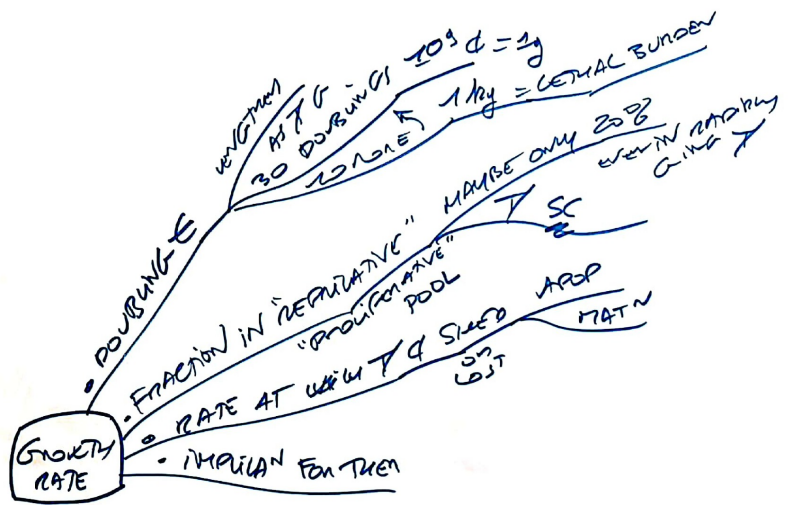 GROWTH
RATE
• DOUBLING t
LENGTHENS
AS T G
30 DOUBLINGS 10⁹ ¢ = 1g
10 MORE 1 kg = LETHAL BURDEN
• FRACTION IN "REPLICATIVE"
"PROLIFERATIVE"
POOL
MAYBE ONLY 20%
EVEN IN RAPIDLY
GING T
T SC
• RATE AT WHICH T ¢ SHED
OR
LOST
APOP
MATN
• IMPLICAN FOR THER